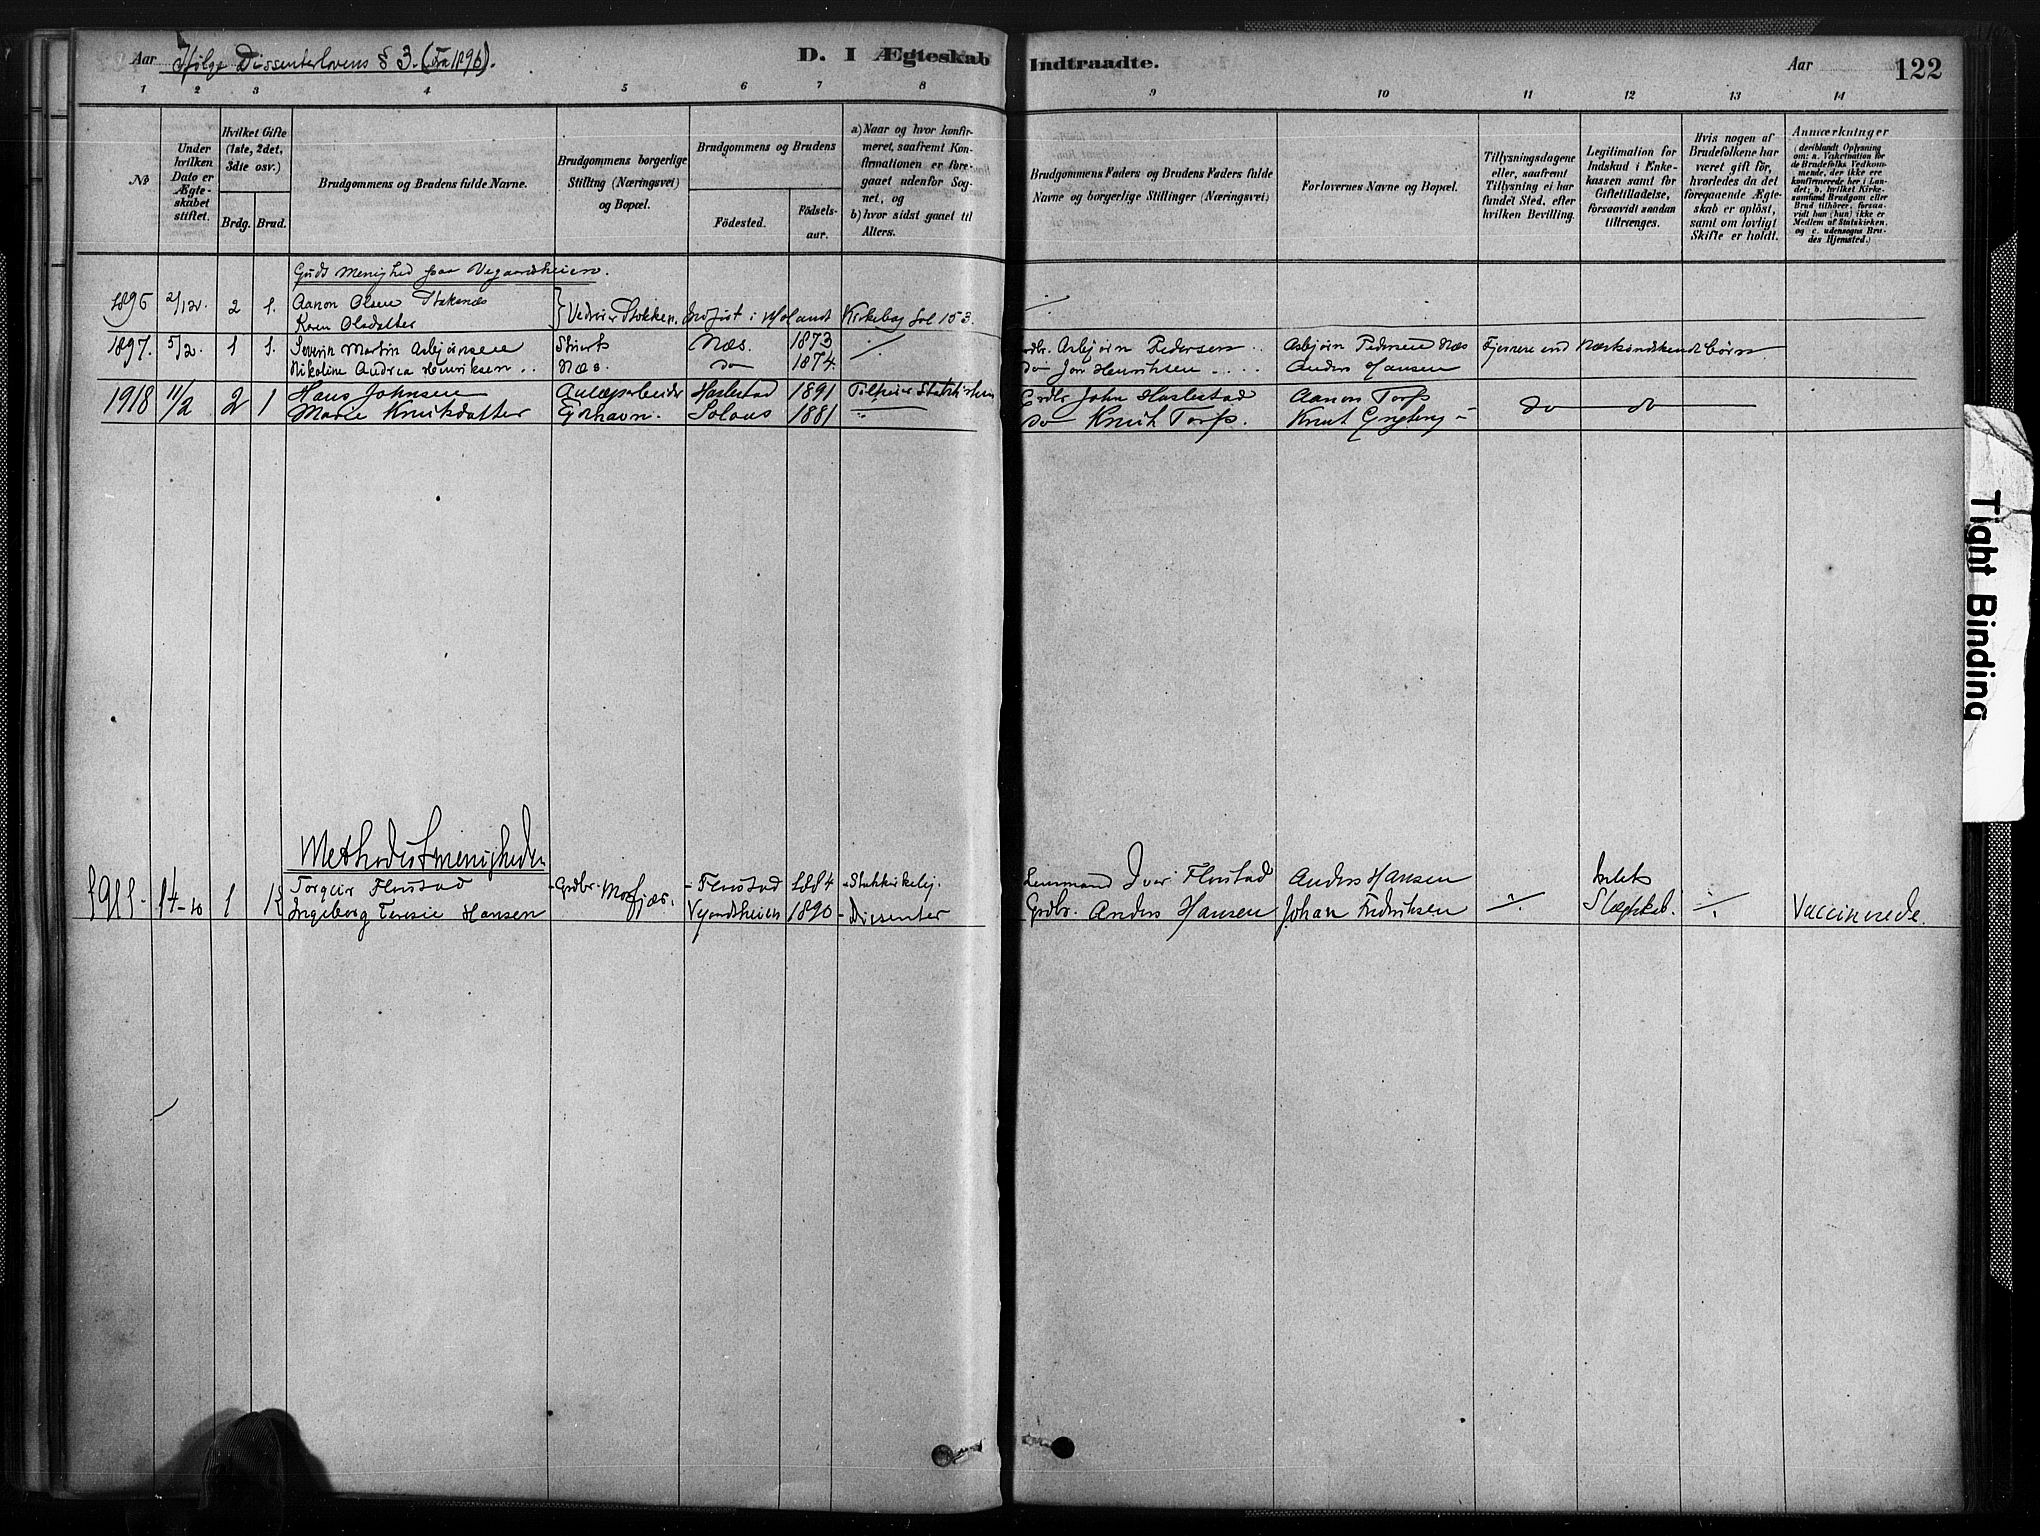 Aar
Ifølge Dissenterlovens § 3. (Fra 1896).
D. I Ægteskab Indtraadte.
Aar
122
1 2 3 4 5 6 7 8 9 10 11 12 13 14
No
Under hvilken Dato er Ægteskabet stiftet.
Hvilket Gifte (1ste, 2det, 3die osv.)
Brdg. Brud.
Brudgommens og Brudens fulde Navne.
Brudgommens borgerlige Stilling (Næringsvei) og Bopæl.
Brudgommens og Brudens
Fødested.
Fødselsaar.
a) Naar og hvor konfirmeret, saafremt Konfirmationen er foregaaet udenfor Sognet, og
b) hvor sidst gaaet til Alters.
Brudgommens Faders og Brudens Faders fulde Navne og borgerlige Stillinger (Næringsvei)
Forlovernes Navne og Bopæl.
Tillysningsdagene eller, saafremt Tillysning ei har fundet Sted, efter hvilken Bevilling.
Legitimation for Indskud i Enkekassen samt for Giftetilladelse, forsaavidt saadan tiltrænges.
Hvis nogen af Brudefolkene har været gift før, hvorledes da det foregaaende Ægteskab er opløst, samt om lovligt Skifte er holdt.
Anmærkninger
(deriblandt Oplysning om: a. Vakcination for de Brudefolks Vedkommende, der ikke ere konfirmerede her i Landet; b. hvilket Kirkesamfund Brudgom eller Brud tilhører, forsaavidt han (hun) ikke er Medlem af Statskirken, og c. udensogns Brudes Hjemsted.)
Guds Menighed paa Vegaardsheien.
1896 2/12. 2 1. Aanon Olsen Stokken. Kirkebog fol 153.
Karen Olsdatter
1897. 5/2. 1 1. Severin Martin Asbjørnsen Næs. 1873 Asbjørn Pedersen Asbjørn Pedersen Næs Fjernere end Næstsødskendebørn
Nikoline Andrea Henriksen Næs. do 1874 do Jon Henriksen Anders Hansen
1918 11/2 2 1 Hans Johnsen Haslestad 1891 Grdbr John Haslestad Aanon Torp do do
Marie Knutsdatter Solaas 1881 do Knut Torp. Knut
Methodistmenigheden
1911. 14-10 1 Torgeir Flaustad Grdbr. 1884 Statskirkelig. Lensmand Iver Anders Hansen
Ingeborg Teresie Hansen Vegardsheien 1890 Dissenter Grdbr. Anders Hansen Johan Fredriksen Vaccinerede.
Tight Binding